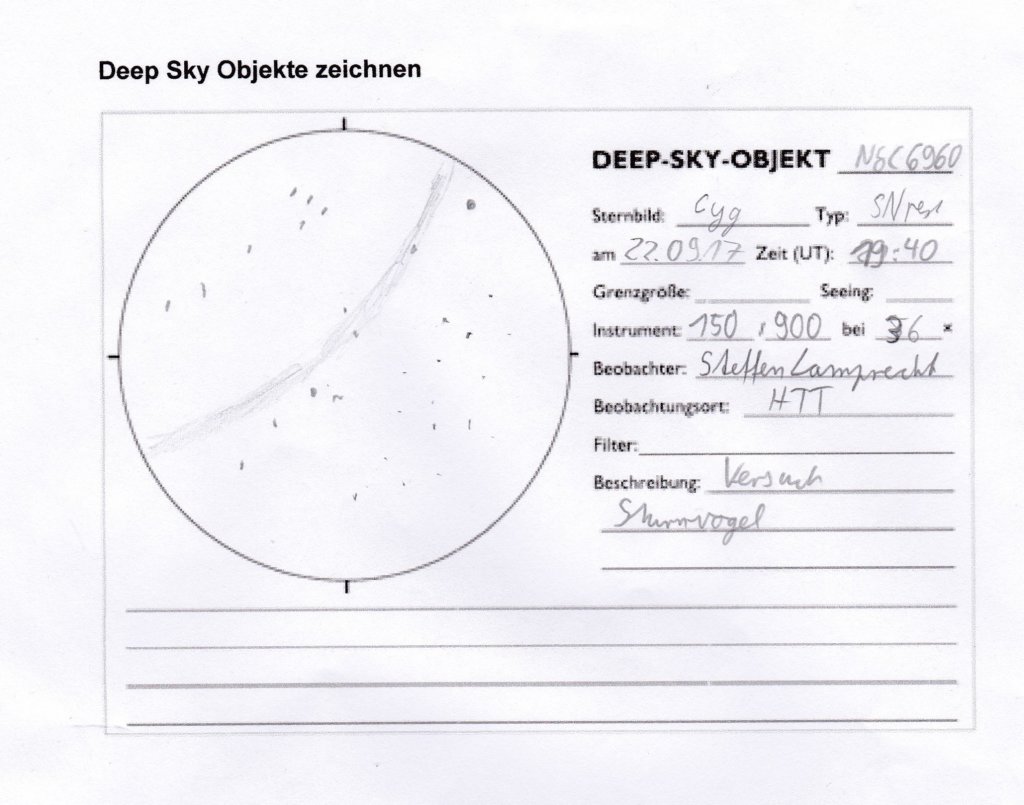 Deep Sky Objekte zeichnen
DEEP-SKY-OBJEKT NGC6960
Sternbild: Cyg Typ: SNres
am 22.09.17 Zeit (UT): 19:40
Grenzgröße: Seeing:
Instrument: 150 / 900 bei 36 x
Beobachter: Steffen Lamprecht
Beobachtungsort: HTT
Filter:
Beschreibung: Versuch
Sturmvogel